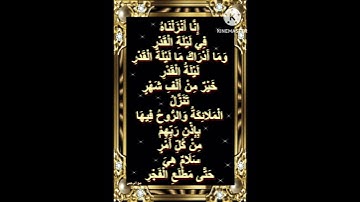 KINEMASTER
إِنَّا أَنْزَلْنَاهُ
فِي لَيْلَةِ الْقَدْرِ
وَمَا أَدْرَاكَ مَا لَيْلَةُ الْقَدْرِ
لَيْلَةُ الْقَدْرِ
خَيْرٌ مِنْ أَلْفِ شَهْرٍ
تَنَزَّلُ
الْمَلَائِكَةُ وَالرُّوحُ فِيهَا
بِإِذْنِ رَبِّهِمْ
مِنْ كُلِّ أَمْرٍ
سَلَامٌ هِيَ
حَتَّى مَطْلَعِ الْفَجْرِ